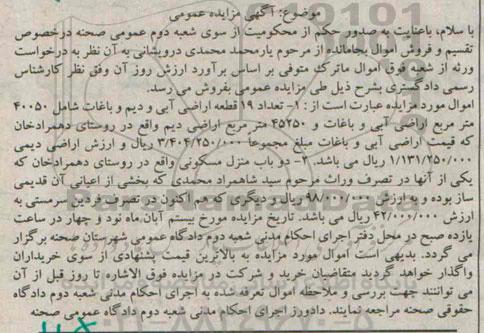 موضوع: آگهی مزایده عمومی
با سلام، باعنایت به صدور حکم از محکومیت از سوی شعبه دوم عمومی صحنه درخصوص
تقسیم و فروش اموال بجامانده از مرحوم یارمحمد محمدی درویشانی به آن نظر به درخواست
ورثه از شعبه فوق اموال ماترک متوفی بر اساس برآورد ارزش روز آن وفق نظر کارشناس
رسمی دادگستری بشرح ذیل طی مزایده عمومی بفروش می رسد.
اموال مورد مزایده عبارت است از: ۱- تعداد ۱۹ قطعه اراضی آبی و دیم و باغات شامل ۴۰۰۵۰
متر مربع اراضی آبی و باغات و ۴۵۲۵۰ متر مربع اراضی دیم واقع در روستای دهمرادخان
که قیمت اراضی آبی و باغات مبلغ مجموعا ۳/۴۰۴/۲۵۰/۰۰۰ ریال و ارزش اراضی دیمی
۱/۱۳۱/۲۵۰/۰۰۰ ریال می باشد. ۲- دو باب منزل مسکونی واقع در روستای دهمرادخان که
یکی از آنها در تصرف وراث مرحوم سید شاهمراد محمدی که بخشی از اعیانی آن قدیمی
ساز بوده و به ارزش ۹۸/۰۰۰/۰۰۰ ریال و دیگری که هم اکنون در تصرف فردین سرمستی به
ارزش ۴۲/۰۰۰/۰۰۰ ریال می باشد. تاریخ مزایده مورخ بیستم آبان ماه نود و چهار در ساعت
یازده صبح در محل دفتر اجرای احکام مدنی شعبه دوم دادگاه عمومی شهرستان صحنه برگزار
می گردد. بدیهی است اموال مورد مزایده به بالاترین قیمت پیشنهادی از سوی خریداران
واگذار خواهد گردید متقاضیان خرید و شرکت در مزایده فوق الاشاره تا روز قبل از آن
می توانند جهت بررسی و ملاحظه اموال تعرفه شده به اجرای احکام مدنی شعبه دوم دادگاه
حقوقی صحنه مراجعه نمایند. دادورز اجرای احکام مدنی شعبه دوم دادگاه عمومی صحنه